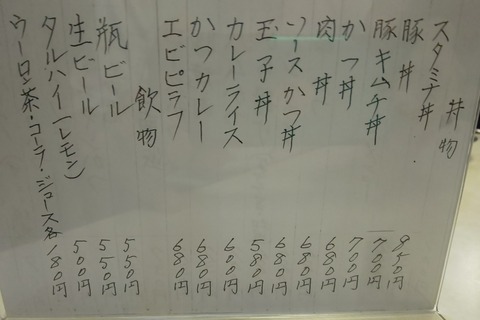 丼物
スタミナ丼 850円
豚丼 700円
豚キムチ丼 700円
かつ丼 680円
肉丼 680円
ソースかつ丼 680円
玉子丼 580円
カレーライス 600円
かつカレー 680円
エビピラフ 680円
飲物
瓶ビール 550円
生ビール 550円
タルハイ(レモン) 500円
ウーロン茶・コーラ・ジュース各180円